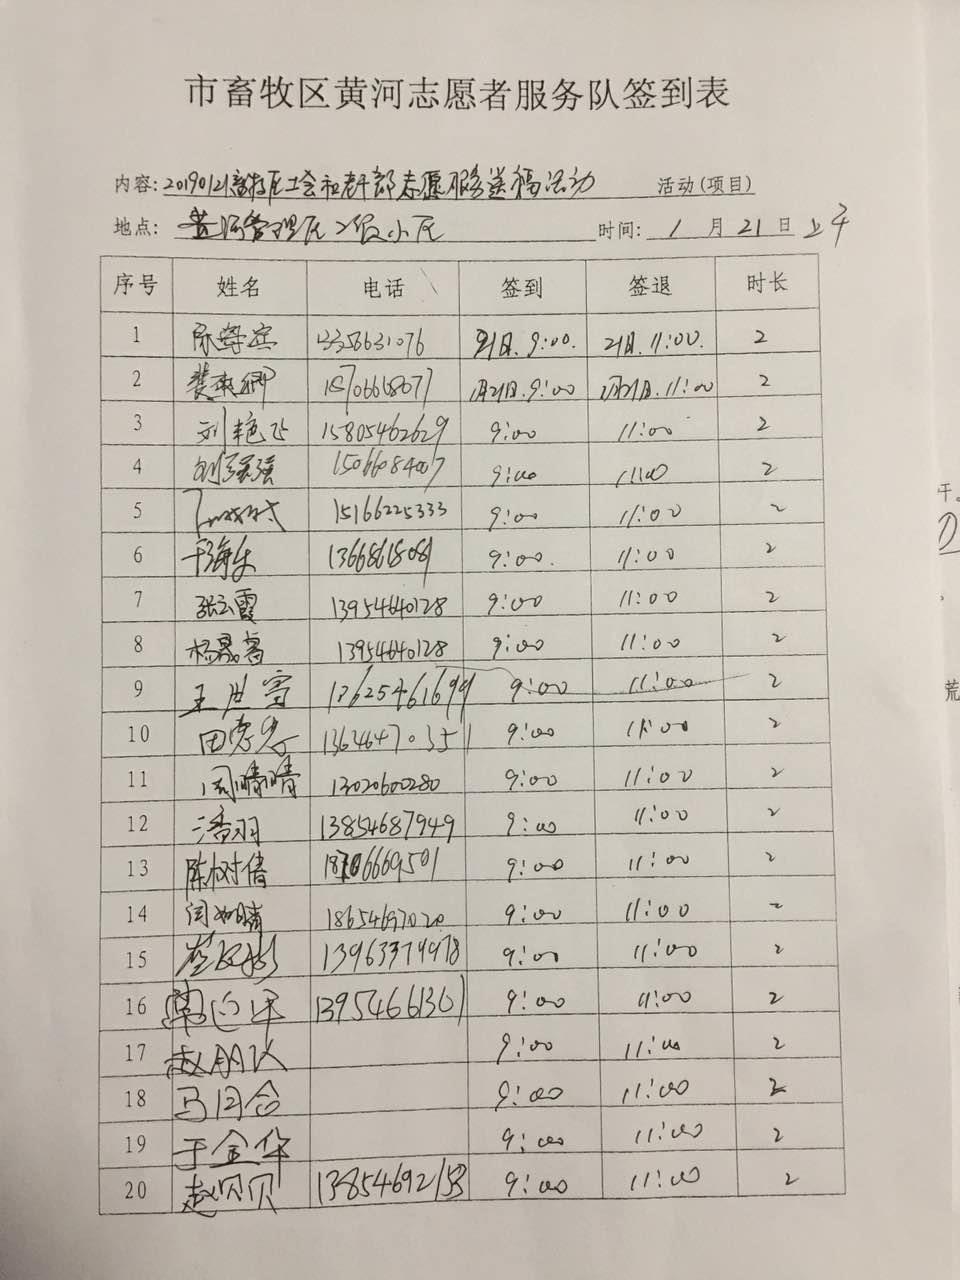 市畜牧区黄河志愿者服务队签到表
内容: 20190121畜牧区工会和老干部志愿服务送福活动 活动(项目)
地点: 黄河管理区 小区 时间: 1 月 21 日 上午
序号 姓名 电话 签到 签退 时长
1 21日.9:00. 21日.11:00. 2
2 15706668077 1月21日.9:00 1月21日.11:00 2
3 刘艳飞 15805462629 9:00 11:00 2
4 刘强强 15066084007 9:00 11:00 2
5 15166225333 9:00 11:00 2
6 于海生 13668618081 9:00. 11:00 2
7 张云霞 13954640128 9:00 11:00 2
8 杨景富 13954640128 9:00 11:00 2
9 王世雪 13625461699 9:00 11:00 2
10 13646470351 9:00 11:00 2
11 周晴晴 13020600280 9:00 11:00 2
12 潘羽 13854687949 9:00 11:00 2
13 陈树倩 18706669501 9:00 11:00 2
14 闫如晴 18654697020 9:00 11:00 2
15 13963379978 9:00 11:00 2
16 13954661301 9:00 11:00 2
17 赵朋 9:00 11:00 2
18 马同合 9:00 11:00 2
19 于金华 9:00 11:00 2
20 赵贝贝 13854692153 9:00 11:00 2
干。
荒